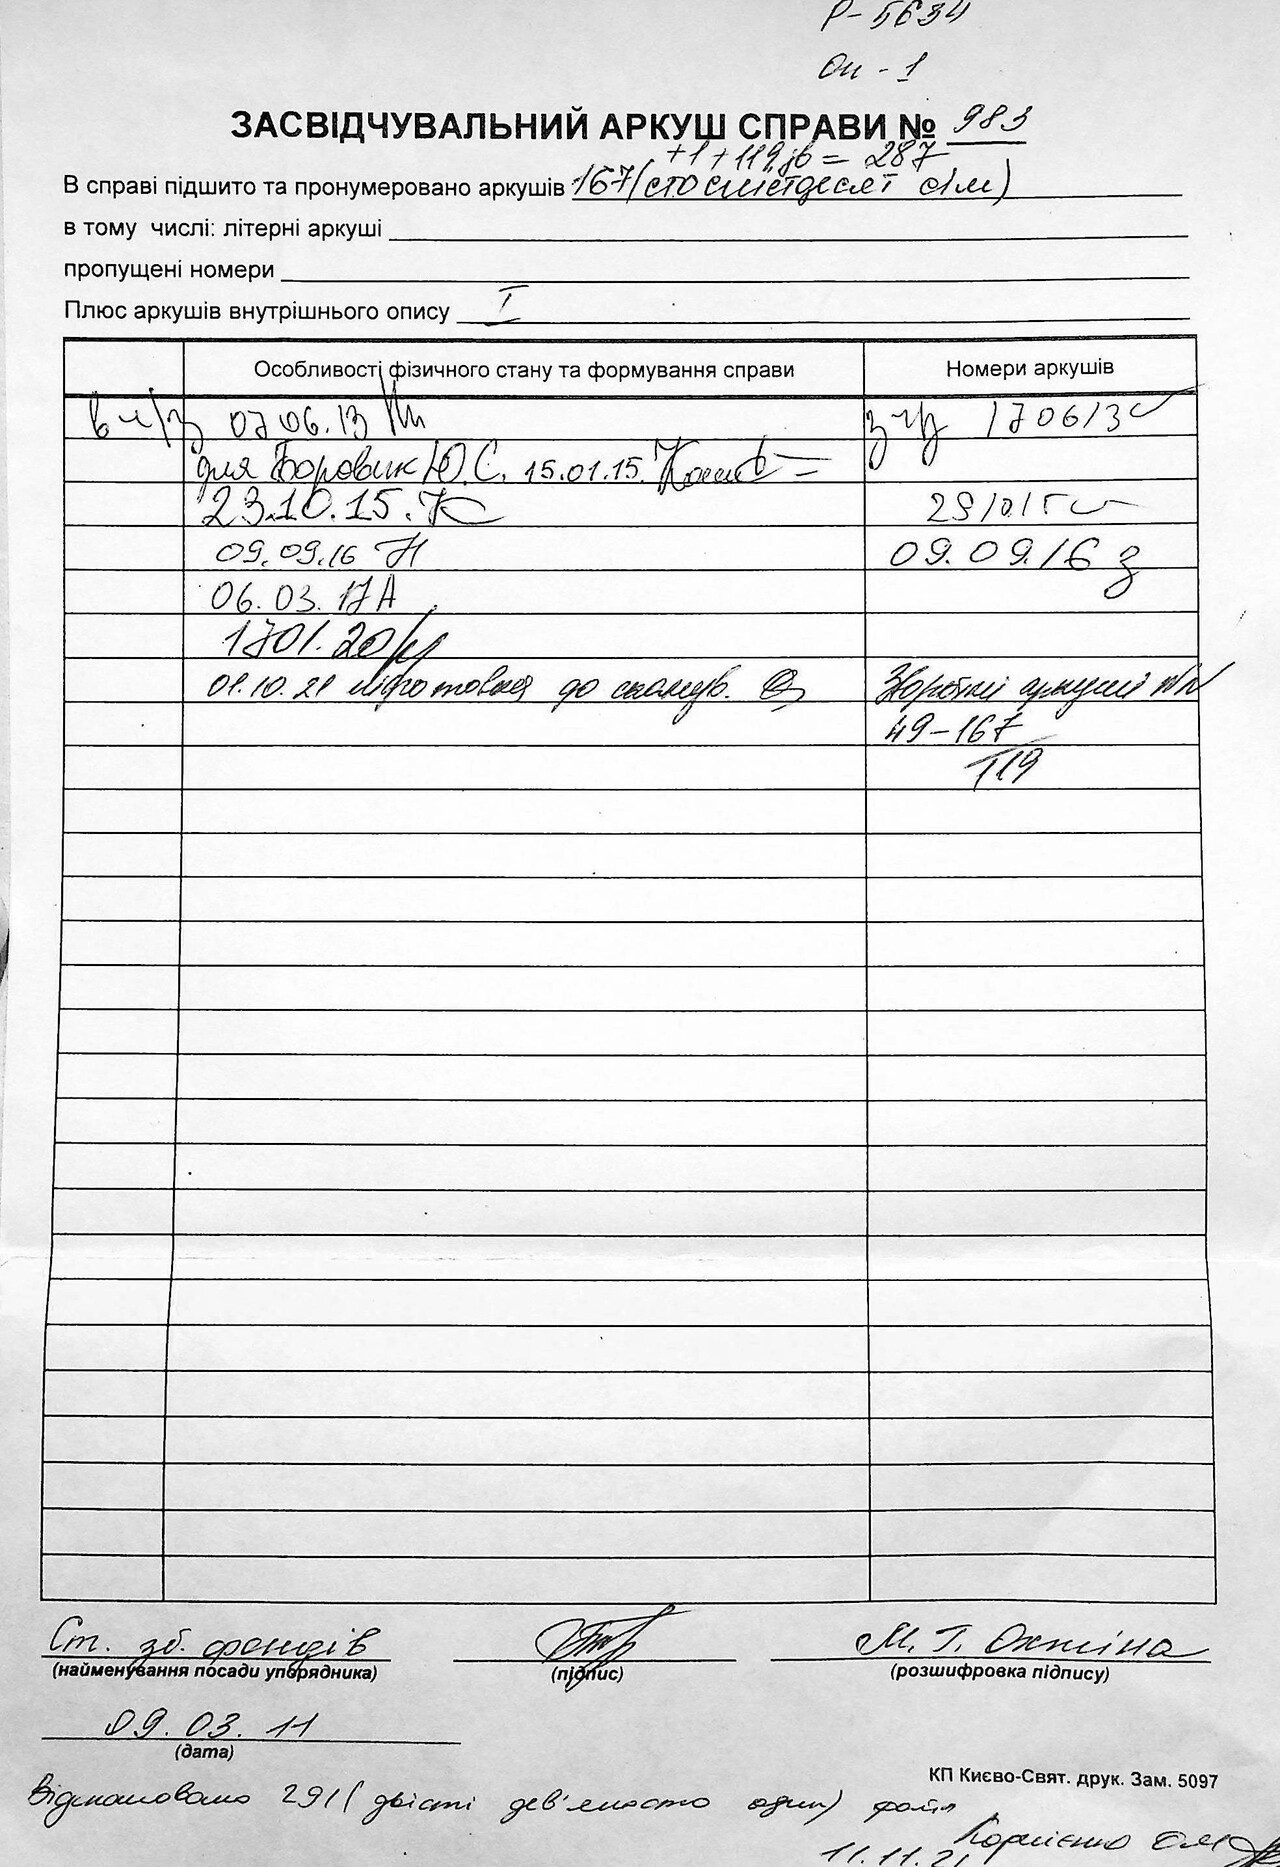 Р-5634
Оп - 1
ЗАСВІДЧУВАЛЬНИЙ АРКУШ СПРАВИ № 983
+1 +119зв = 287
В справі підшито та пронумеровано аркушів 167(сто шістдесят сім)
в тому числі: літерні аркуші
пропущені номери
Плюс аркушів внутрішнього опису I
Особливості фізичного стану та формування справи Номери аркушів
в ч/з 07 06.13 з ч/з 170613
для Боровик Ю.С. 15.01.15.
23.10.15.
09.09.16 Н 09.09.16 з
06.03.17А
1701.20
01.10.21 підготовка до сканув. Звороти аркушів №№
49-167
119
Ст. зб. фондів М. Г. Охтіна
(найменування посади упорядника) (підпис) (розшифровка підпису)
09.03.11
(дата)
КП Києво-Свят. друк. Зам. 5097
Відскановано 291( двісті дев'яносто один) файл
11.11.21 Корнієнко О.М.